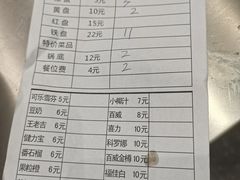 黄盘 10元 2
红盘 15元
铁盘 22元 11
特价菜品
锅底 12元 2
餐位费 4元 2
可乐雪芬 5元 小椰汁 7元
豆奶 6元 百威 8元
王老吉 6元 喜力 10元
健力宝 6元 科罗娜 10元
番石榴 6元 百威金樽 10元
果粒橙 6元 福佳白 10元